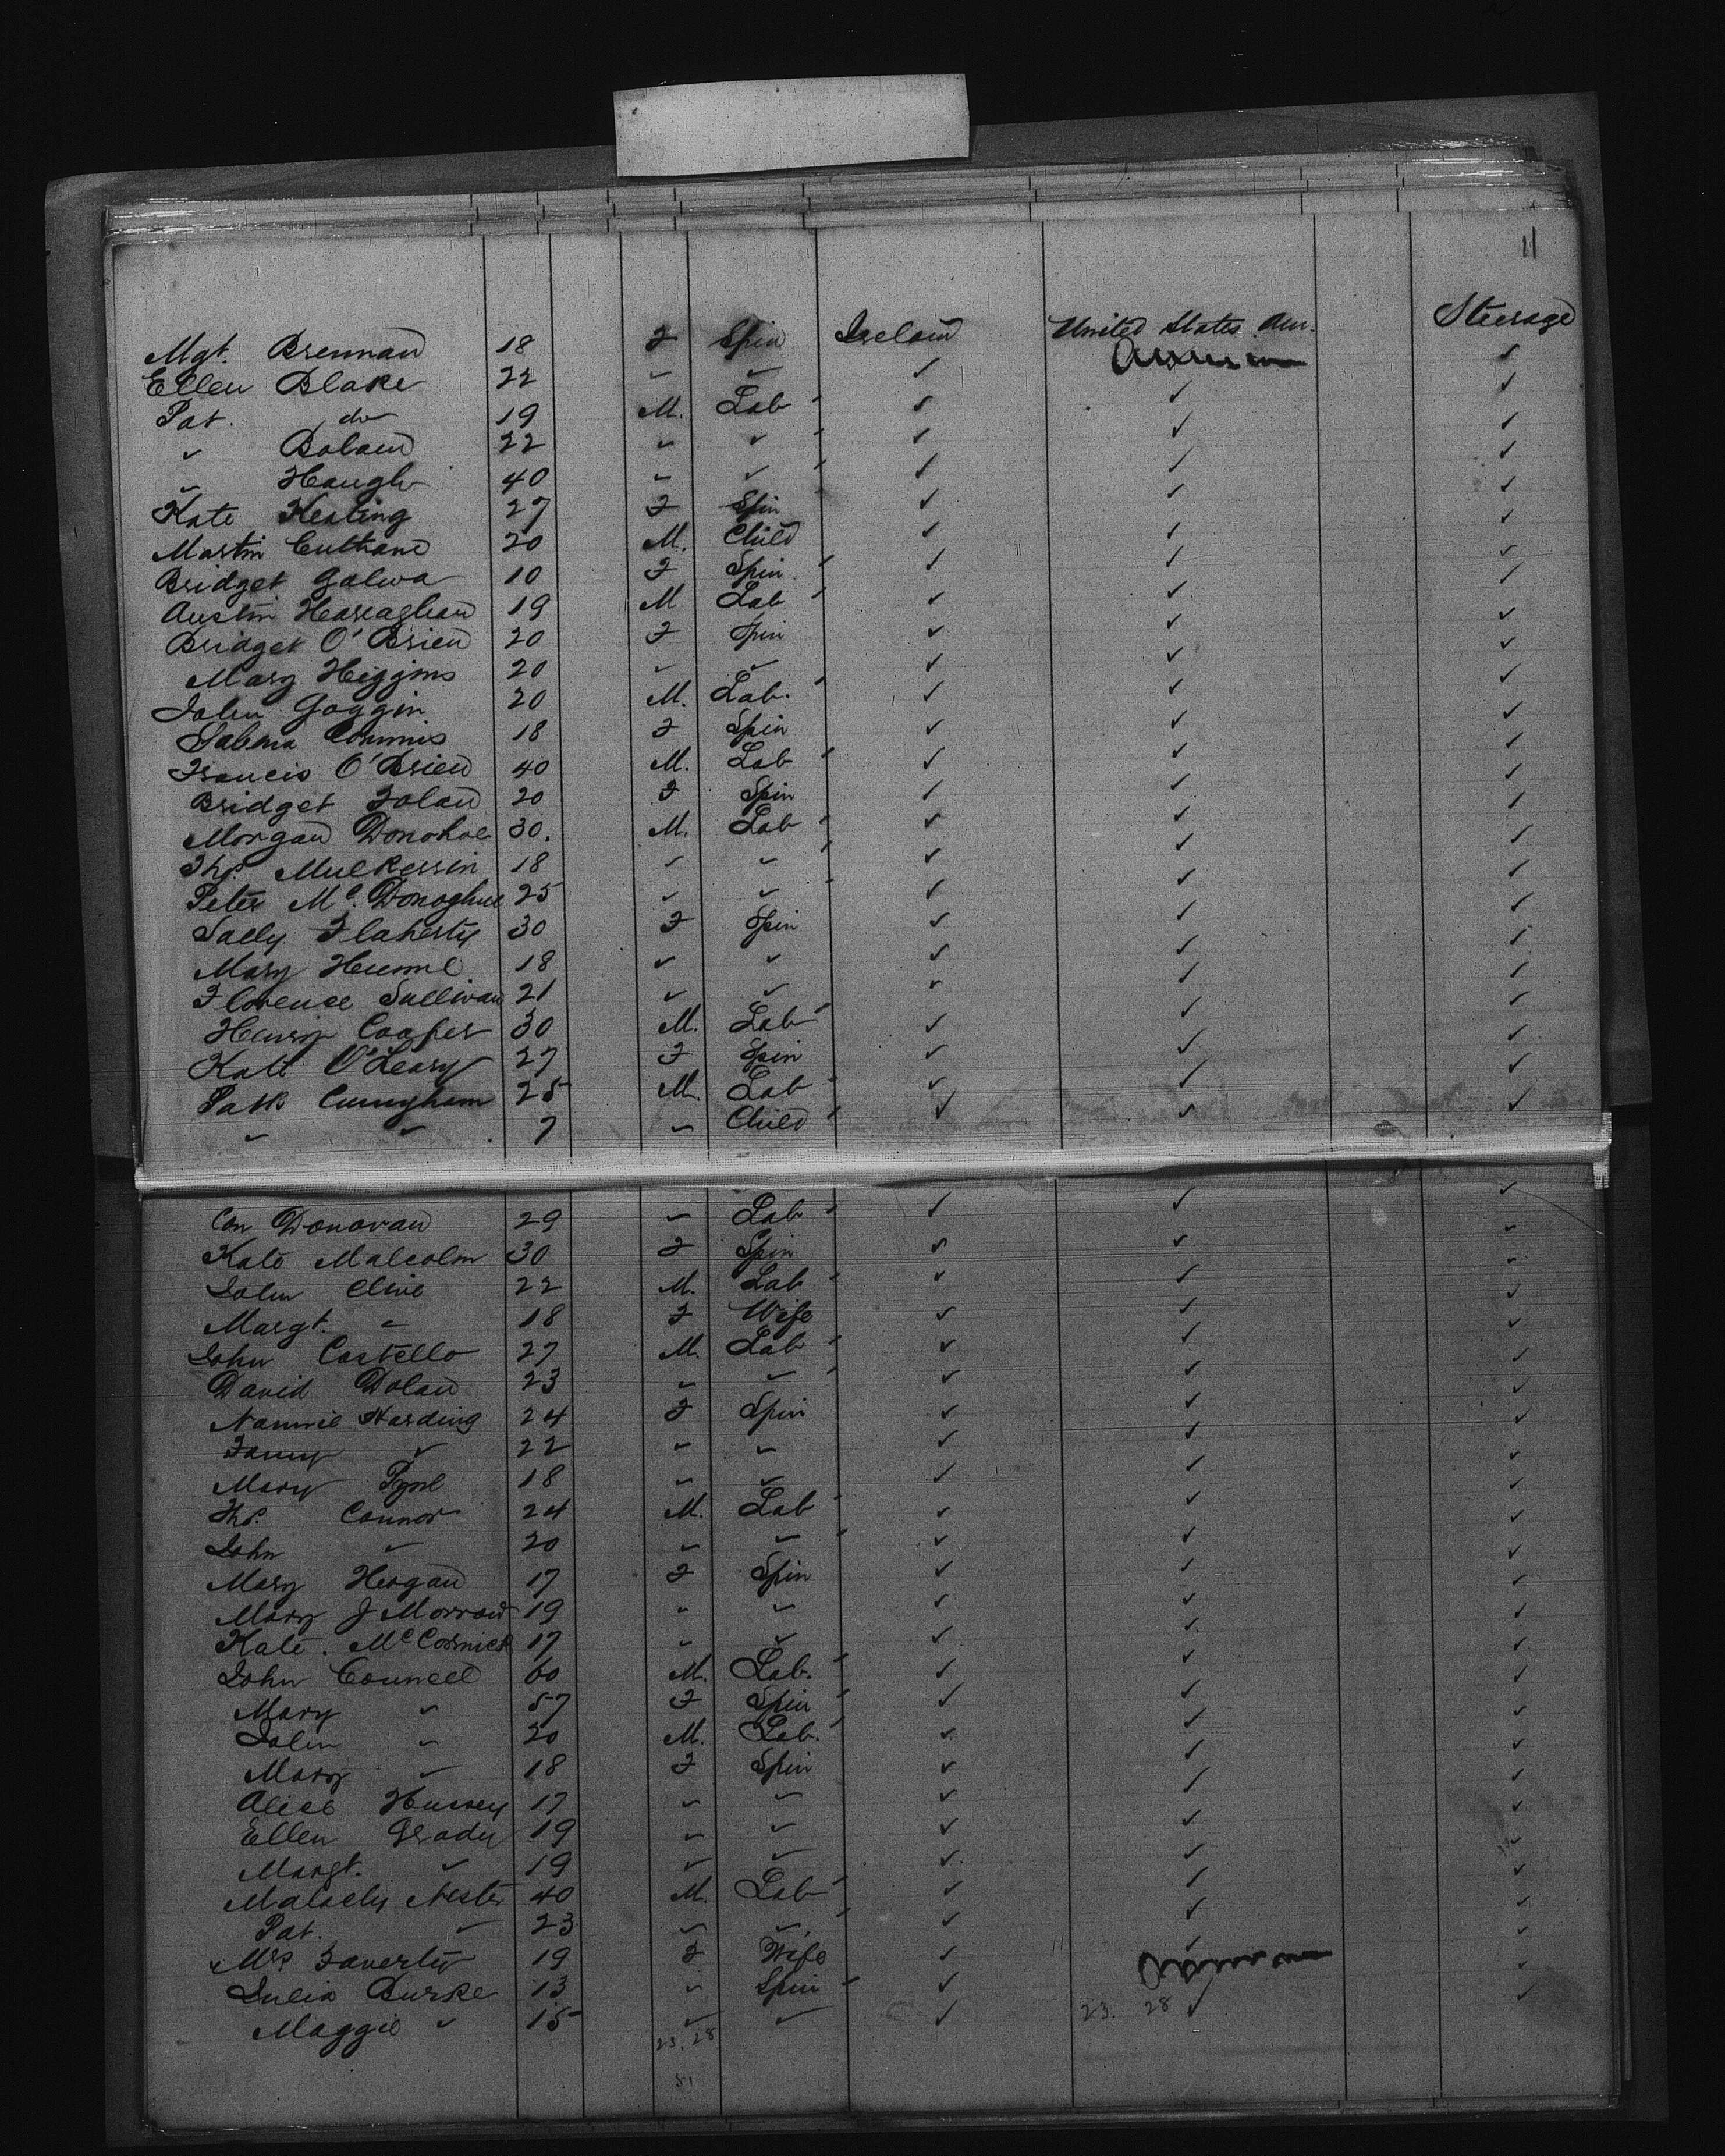 11
Steerage
Mgt. Brennan 18 F Spin Ireland United States Am.
Ellen Blake 22 " " ✓ ✓
Pat. do 19 M. Lab ✓ ✓ ✓
" Boland 22 " " ✓ ✓ ✓
" Haugh 40 " " ✓ ✓ ✓
Kate Keating 27 F Spin ✓ ✓ ✓
Martin Culhane 20 M. Child ✓ ✓ ✓
Bridget Galwa 10 F Spin ✓ ✓ ✓
Austin 19 M Lab ✓ ✓ ✓
Bridget O'Brien 20 F Spin ✓ ✓ ✓
Mary Higgins 20 " " ✓ ✓ ✓
John Goggin 20 M. Lab. ✓ ✓ ✓
Sabina Commis 18 F Spin ✓ ✓ ✓
Francis O'Brien 40 M. Lab ✓ ✓ ✓
Bridget Folan 20 F Spin ✓ ✓ ✓
Morgan Donohoe 30. M. Lab ✓ ✓ ✓
Thos. Mulkerrin 18 " " ✓ ✓ ✓
Peter Mc. Donoghue 25 " " ✓ ✓ ✓
Sally Flaherty 30 F Spin ✓ ✓ ✓
Mary 18 " " ✓ ✓ ✓
Florence Sullivan 21 " " ✓ ✓ ✓
Henry Cooper 30 M. Lab ✓ ✓ ✓
Kate O'Leary 27 F Spin ✓ ✓ ✓
Patk Cunngham 25 M. Lab ✓ ✓ ✓
" " 7 " Child ✓ ✓ ✓
Con Donovan 29 " Lab ✓ ✓ ✓
Kate Malcolm 30 F Spin ✓ ✓ ✓
John Clive 22 M. Lab ✓ ✓ ✓
Margt. " 18 F Wife ✓ ✓ ✓
John Costello 27 M. Lab ✓ ✓ ✓
David Dolan 23 " " ✓ ✓ ✓
Nannie Harding 24 F Spin ✓ ✓ ✓
Fanny " 22 " " ✓ ✓ ✓
Mary Pyne 18 " " ✓ ✓ ✓
Thos. Connor 24 M. Lab ✓ ✓ ✓
John " 20 " " ✓ ✓ ✓
Mary Horgan 17 F Spin ✓ ✓ ✓
Mary J Morrow 19 " " ✓ ✓ ✓
Kate. McCormick 17 " " ✓ ✓ ✓
John Councel 60 M. Lab. ✓ ✓ ✓
Mary " 57 F Spin ✓ ✓ ✓
John " 20 M. Lab. ✓ ✓ ✓
Mary " 18 F Spin ✓ ✓ ✓
Alice Hussey 17 " " ✓ ✓ ✓
Ellen Grady 19 " " ✓ ✓ ✓
Margt. " 19 " " ✓ ✓ ✓
Malachy Nestor 40 M. Lab ✓ ✓ ✓
Pat. " 23 " " ✓ ✓ ✓
Mrs Faverty 19 F Wife ✓ ✓ ✓
Julia Burke 13 " Spin ✓ ✓
Maggie " 15 " " ✓ 23. 28 ✓ ✓
23. 28
51